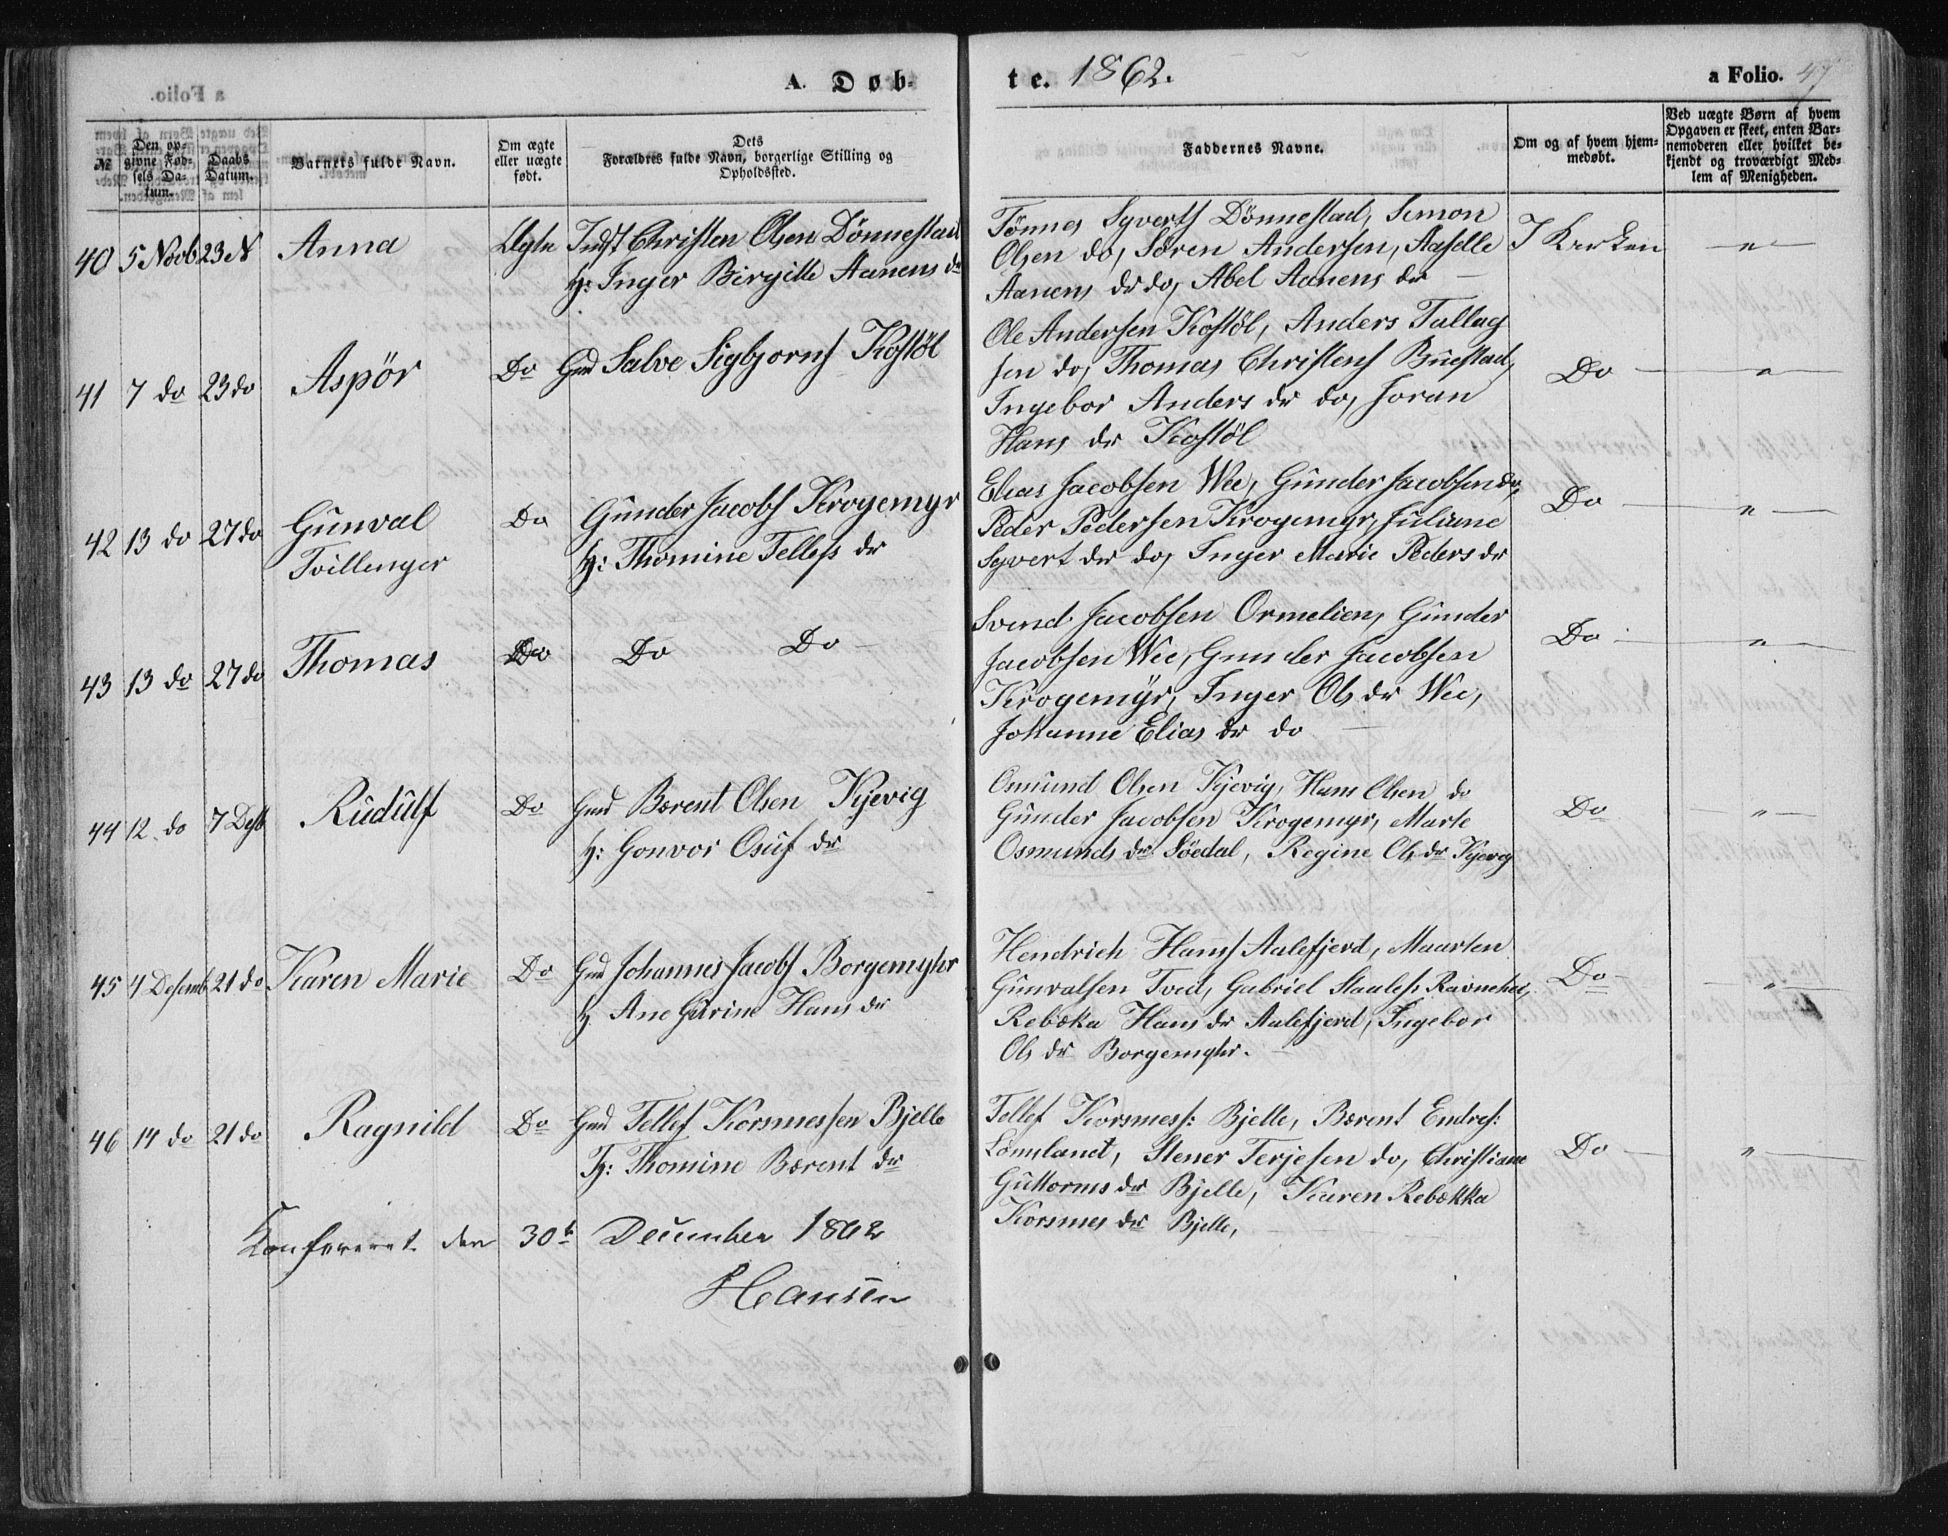 A. Døb-
te. 1862.
a Folio. 47
№
Den op-
givne Fød-
sels Da-
tum.
Daabs
Datum.
Barnets fulde Navn.
Om ægte
eller uægte
født.
Dets
Forældres fulde Navn, borgerlige Stilling og
Opholdssted.
Faddernes Navne.
Om og af hvem hjem-
medøbt.
Ved uægte Børn af hvem
Opgaven er skeet, enten Bar-
nemoderen eller hvilket be-
kjendt og troværdigt Med-
lem af Menigheden.
40 5 Novb 23 N Anna Ægte Indst Christen Olsen Dönnestad
H: Inger Birgitte Aanens dr
Tönnes Syverts Dönnestad, Simon
Olsen do, Sören Andersen, Aaselle
Aanens dr do, Abel Aanens dr
I Kirken "
41 7 do 23 do Aspör Do Gmd Salve Sigbjorns Kostöl
Ole Andersen Kostöl, Anders Tallag
sen do, Thomas Christens Buestad,
Ingebor Anders dr do, Joran
Hans dr Kostöl
Do "
42 13 do 27 do Gunval
Tvillenger
Do Gunder Jacobs Krogemyr
H: Thomine Tellefs dr
Elias Jacobsen Wee, Gunder Jacobsen do,
Peder Pedersen Krogemyr, Juliane
Syvert dr do, Inger Marie Peders dr
Do "
43 13 do 27 do Thomas Do Do Do
Svend Jacobsen Ormelien, Gunder
Jacobsen Wee, Gunder Jacobsen
Krogemyr, Inger Ols dr Wee,
Johanne Elias dr do
Do "
44 12 do 7 Desb Rudulf Do Gmd Bærent Olsen Kjevig
H: Gonvor Osuf dr
Osmund Olsen Kjevig, Hans Olsen do
Gunder Jacobsen Krogemyr, Marte
Osmunds dr Söedal, Regine Ols dr Kjevig
Do "
45 4 Desemb 21 do Karen Marie Do Gmd Johannes Jacobs Borgemyhr
H Ane Gurine Hans dr
Hendrich Hans Aalefjerd, Maarten
Gunvalsen Tved, Gabriel Staales: Ravnehei,
Rebæka Hans dr Aalefjerd, Ingebor
Ols dr Borgemyhr.
Do "
46 14 do 21 do Ragnild Do Gmd Tellef Korsmessen Bjelle
H: Thomine Bærent dr
Tellef Korsmess: Bjelle, Bærent Endres:
Lömsland, Stener Terjesen do, Christiane
Guttorms dr Bjelle, Karen Rebækka
Korsmes dr Bjelle,
Do "
Konfereret den 30t December 1862
Hansen